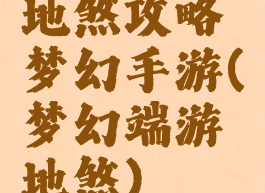 地煞攻略
梦幻手游(
梦幻端游
地煞)